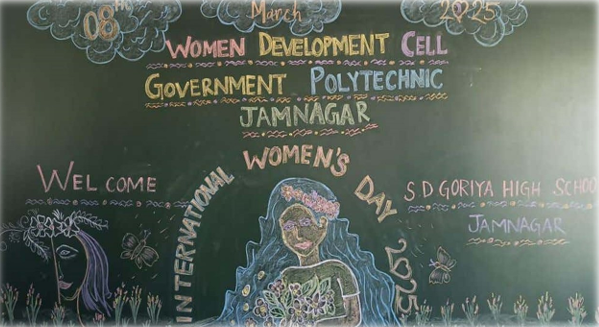 08TH March 2025
WOMEN DEVELOPMENT CELL
GOVERNMENT POLYTECHNIC
JAMNAGAR
INTERNATIONAL WOMEN'S DAY 2025
WELCOME
S D GORIYA HIGH SCHOO
JAMNAGAR